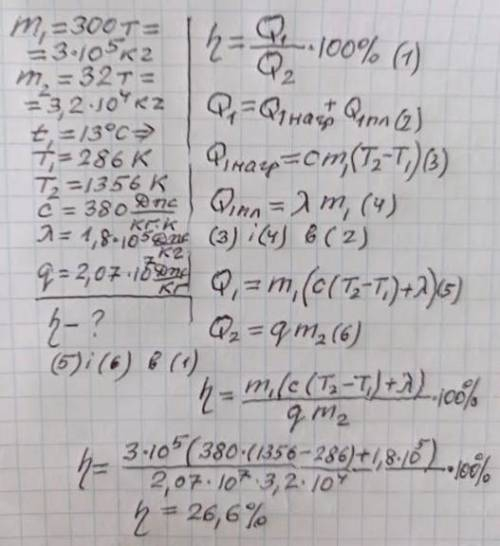 m₁=300т=
=3·10⁵кг
m₂=32т=
=3,2·10⁴кг
t₁=13°C⇒
T₁=286 К
T₂=1356 К
c=380 Дж/кг·К
λ=1,8·10⁵ Дж/кг
q=2,07·10⁷ Дж/кг
η-?
η=Q₁/Q₂·100% (1)
Q₁=Q₁нагр+Q₁пл(2)
Q₁нагр=cm₁(T₂-T₁)(3)
Q₁пл=λm₁(4)
(3) і(4) в (2)
Q₁=m₁(c(T₂-T₁)+λ)(5)
Q₂=qm₂(6)
(5)і(6) в (1)
η=m₁(c(T₂-T₁)+λ)/qm₂·100%
η=3·10⁵(380·(1356-286)+1,8·10⁵)/2,07·10⁷·3,2·10⁴·100%
η=26,6%